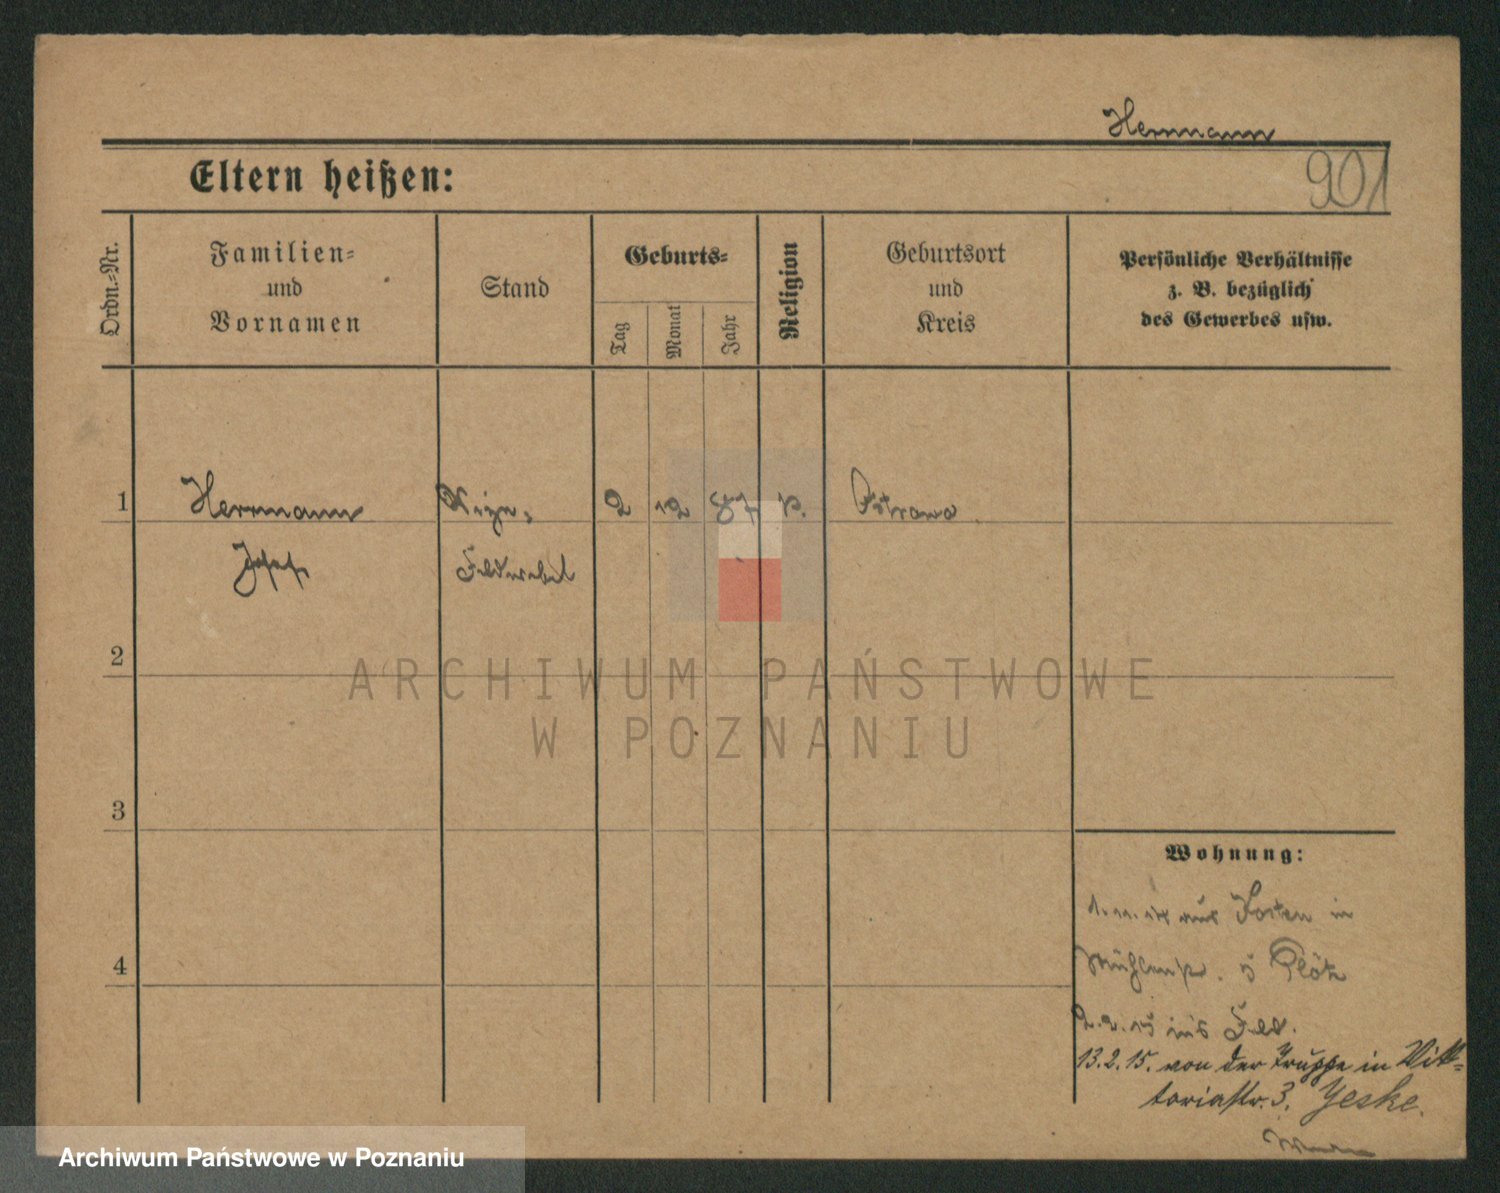 Herrmann
Eltern heißen:
901
Ordn.-Nr.
Familien-
und
Vornamen
Stand
Geburts-
Tag
Monat
Jahr
Religion
Geburtsort
und
Kreis
Persönliche Verhältnisse
z. B. bezüglich
des Gewerbes usw.
1
Herrmann
Josef
Vize-
Feldwebel
2
12
87
Ostrowo
2
3
4
Wohnung:
aus Kosten in
Mühlenstr. 5 Plötz
2.2.15 ins Feld.
13.2.15. von der Truppe in Vik-
toriastr. 3. Jeske.
ARCHIWUM PAŃSTWOWE
W POZNANIU
Archiwum Państwowe w Poznaniu